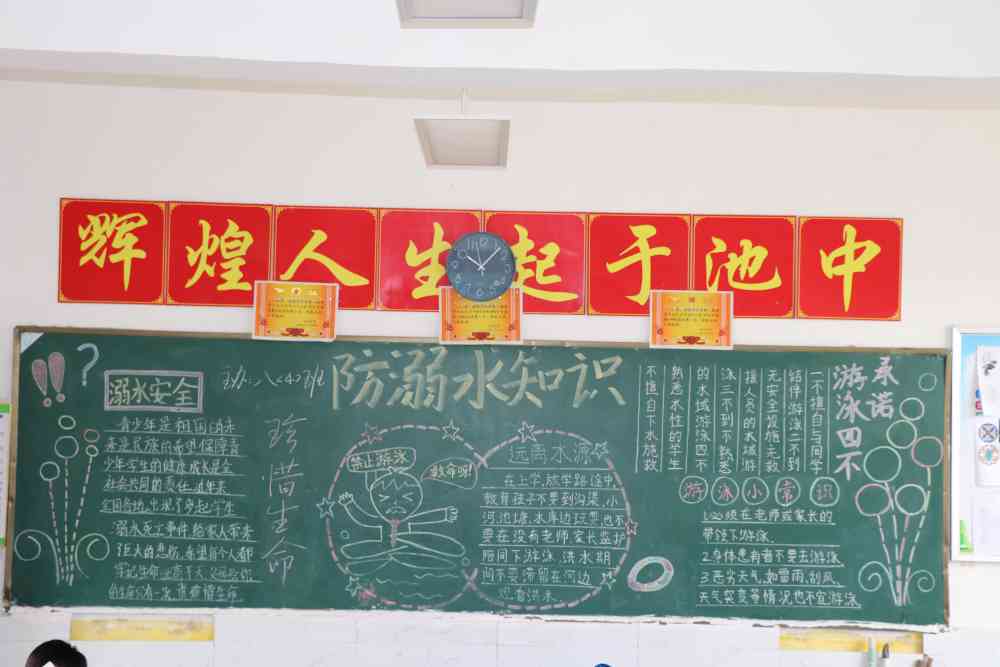 辉煌人生起于池中
防溺水知识
溺水安全
青少年是祖国的未
来是民族的希望保障青
少年学生的健康成长是全
社会共同的责任近年来
全国各地出现了多起学生
溺水死亡事件给家人带来
巨大的悲伤,希望每个人都
珍惜生命
珍惜生命
禁止游泳
救命呀!
远离水源
在上学,放学路途中
教育孩子不要到沟渠,小
河池塘,水库边玩耍也不
要在没有老师家长监护
陪同下游泳,洪水期
间不要滞留在河边
观看洪水.
承诺
游泳四不
一不擅自与同学
结伴游泳二不到
无安全设施无救
援人员的水域游
泳三不到不熟悉
的水域游泳四不
熟悉水性的学生
不擅自下水施救
游泳小常识
1.必须在老师或家长的
带领下游泳.
2.身体患有者不要去游泳
3.恶劣天气,如雷雨,刮风
天气突变等情况也不宜游泳